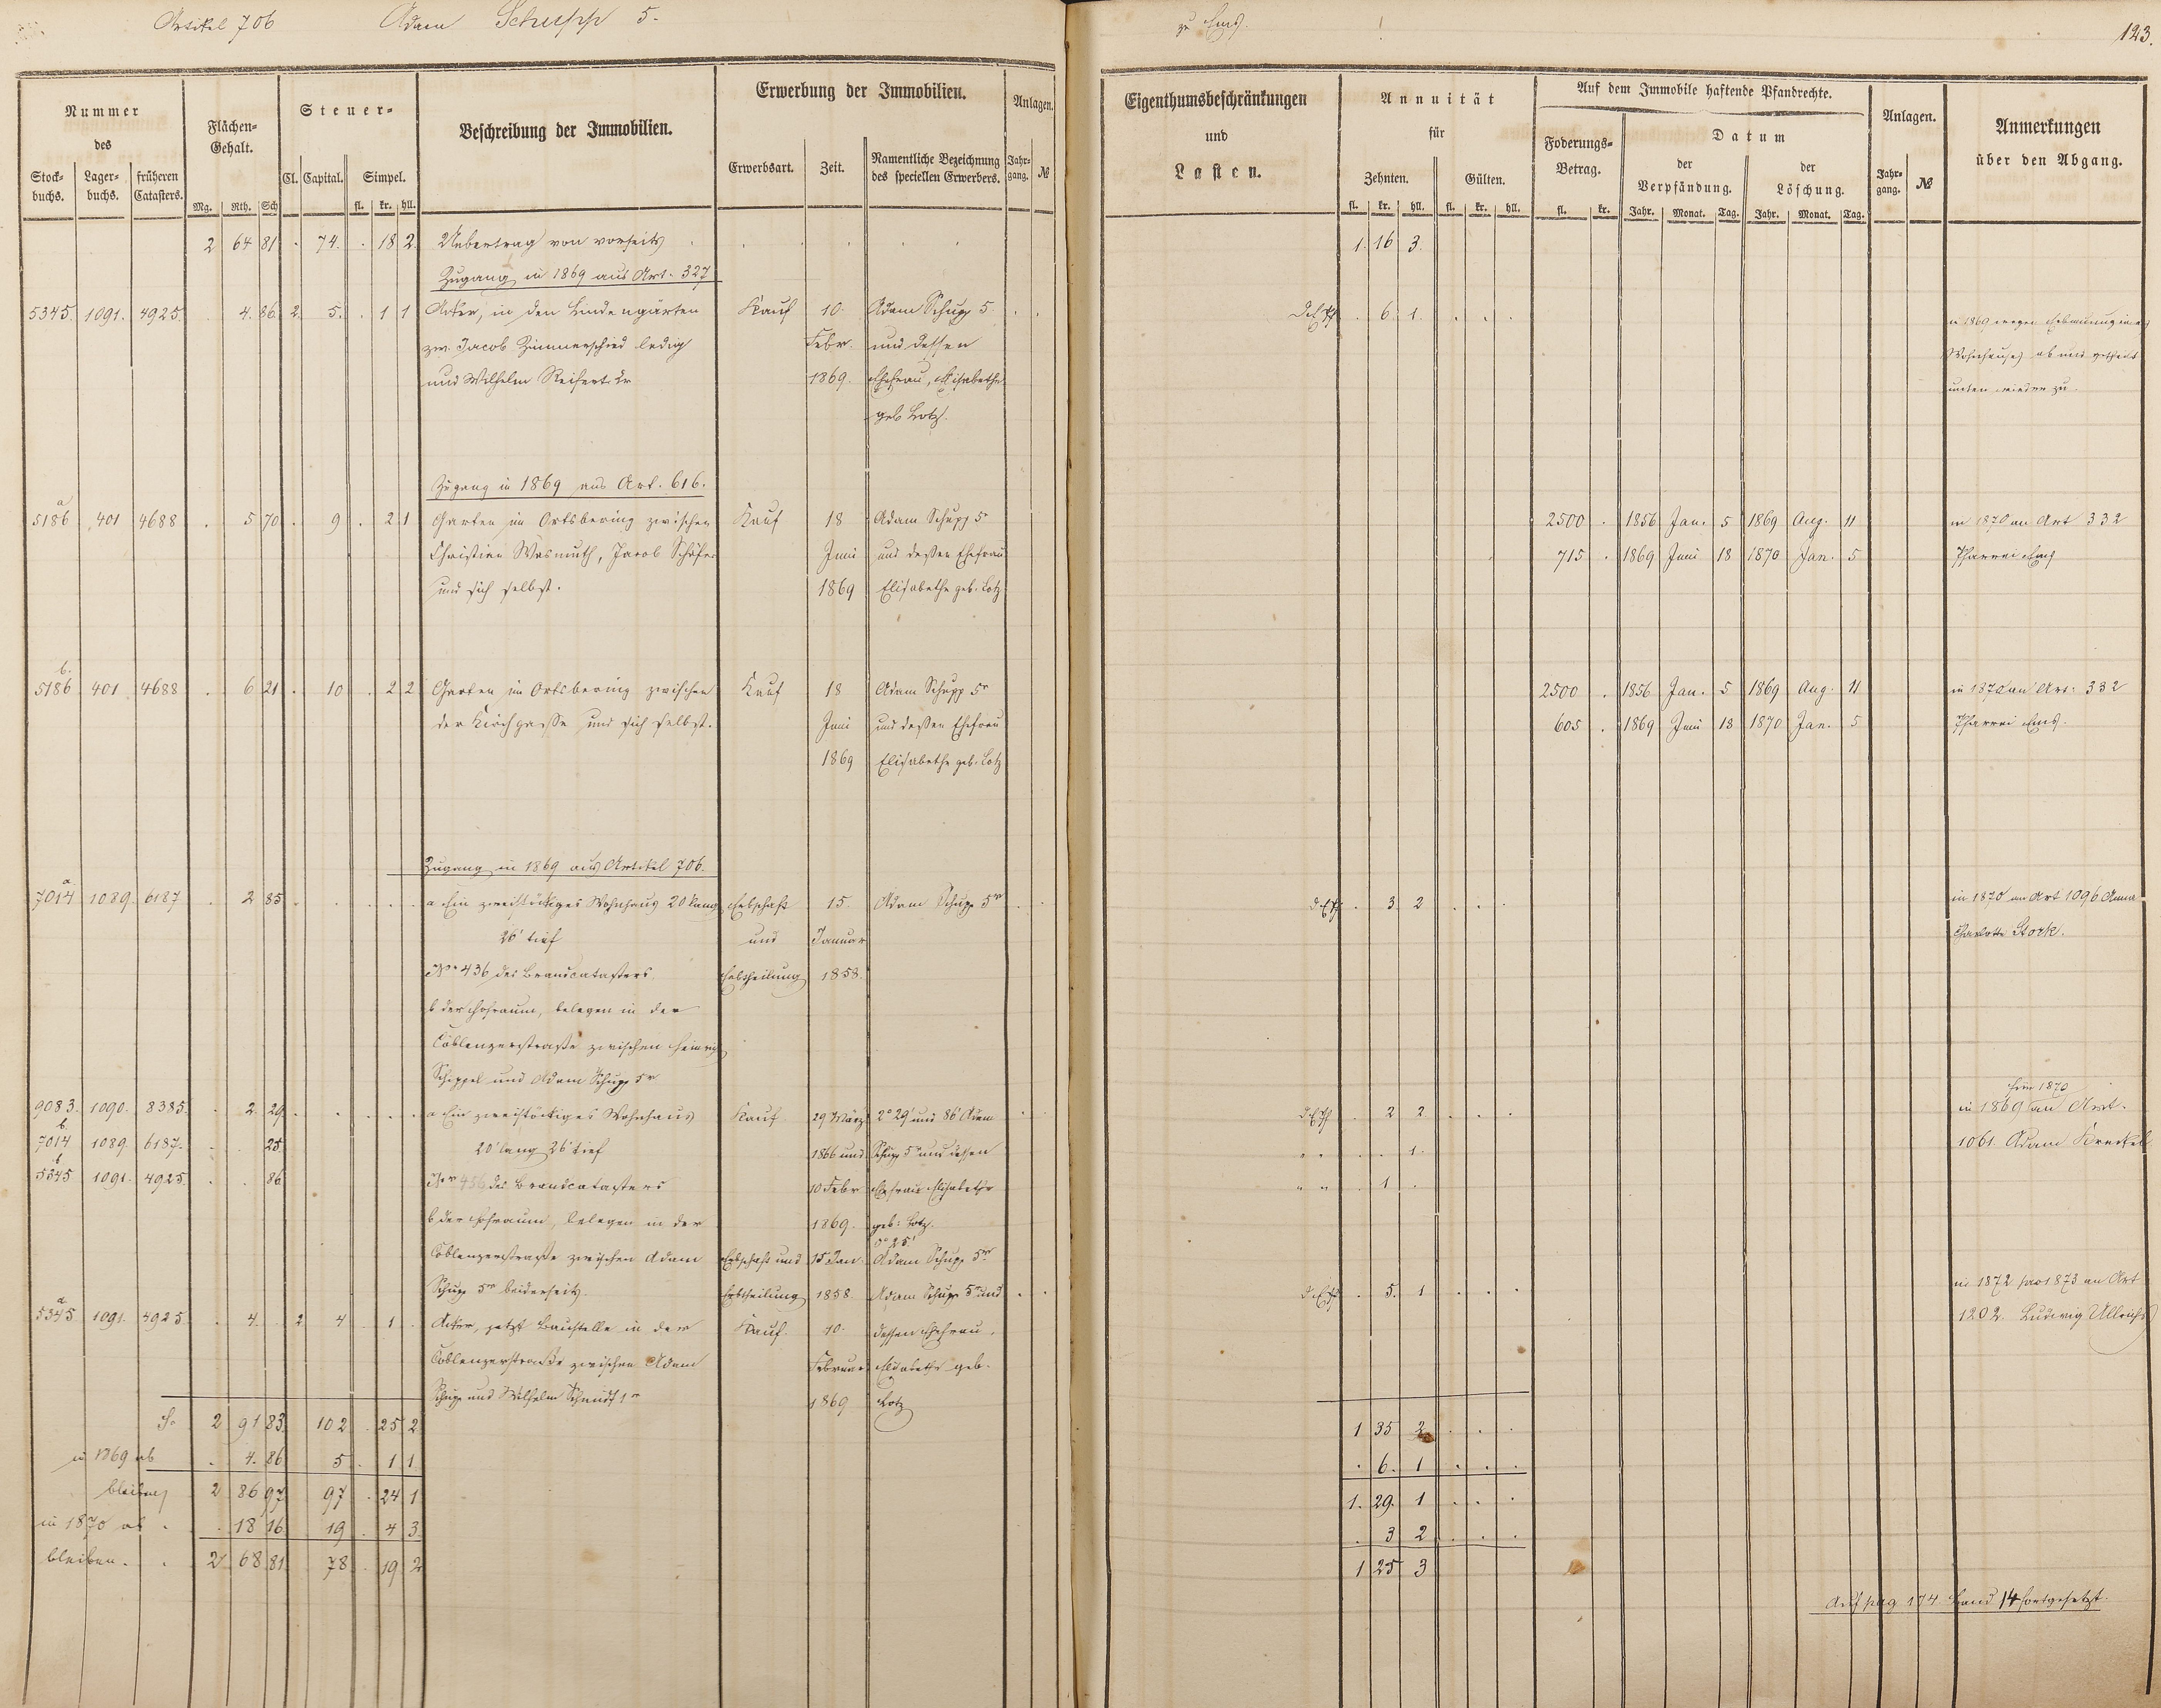 Artikel 706 Adam Schupp 5.
zu Ems.
123.
Nummer des
Stock-buchs. Lager-buchs. früheren Catasters.
Flächen-Gehalt. Mg. Rth. Sch
Steuer-
Cl. Capital. Simpel. fl. kr. hll.
Beschreibung der Immobilien.
Erwerbung der Immobilien.
Erwerbsart. Zeit. Namentliche Bezeichnung des speciellen Erwerbers.
Anlagen. Jahr-gang. №
Eigenthumsbeschränkungen und Lasten.
Annuität für
Zehnten. fl. kr. hll. Gülten. fl. kr. hll.
Auf dem Immobile haftende Pfandrechte.
Foderungs-Betrag. fl. kr.
Datum
der Verpfändung. Jahr. Monat. Tag. der Löschung. Jahr. Monat. Tag.
Anlagen. Jahr-gang. №
Anmerkungen über den Abgang.
2 64 81 . 74. . 18 2 Uebertrag von vorseits 1. 16 3.
Zugang in 1869 aus Art. 327
5345. 1091. 4925. . 4. 86. 2. 5. . 1 1 Acker, in den Lindengärten Kauf 10. Adam Schupp 5. . 6. 1.
zw. Jacob Zimmerschied ledig Febr. und dessen
und Wilhelm Reifert 2r 1869. Ehefrau, Elisabethe
geb. Lotz.
in 1869 wegen Erbauung eines
Wohnhauses ab und getheilt
unten wieder zu.
Zugang in 1869 aus Art. 616.
a
5186 401 4688 . 5 70 . 9 . 2 1 Garten im Ortsbering zwischen Kauf 18 Adam Schupp 5r 2500 . 1856 Jan. 5 1869 Aug. 11 in 1870 an Art 332
Christian Wasmuth, Jacob Schäfer Juni und deßen Ehefrau 715 . 1869 Juni 18 1870 Jan. 5 Pfarrei Ems
und sich selbst. 1869 Elisabethe geb. Lotz
b.
5186 401 4688 . 6 21 . 10 . 2 2 Garten im Ortsbering zwischen Kauf 18 Adam Schupp 5r 2500 . 1856 Jan. 5 1869 Aug. 11 in 1870 an Art. 332
der Kirchgasse und sich selbst. Juni und deßen Ehefrau 605 . 1869 Juni 18 1870 Jan. 5 Pfarrei Ems.
1869 Elisabethe geb. Lotz
Zugang in 1869 aus Artikel 706.
a
7014 1089. 6187 . 2 85 a Ein zweistöckiges Wohnhaus 20 lang Erbschaft 15. Adam Schupp 5r . 3. 2 in 1870 an Art 1096 Anna
26' tief und Januar Charlotte Stork.
No 436 des Brandcatasters Erbtheilung 1858.
b der Hofraum, belegen in der
Coblenzerstraße zwischen Heinrich
Schippel und Adam Schupp 5r
9083. 1090. 8385. . 2. 29. a Ein zweistöckiges Wohnhaus Kauf. 29 März 2° 29' und 86' Adam . 2 2 in 1869 für 1870 an Art.
b.
7014 1089. 6187. . . 25. 20' lang 26' tief 1866 und Schupp 5r und dessen . . 1. 1061. Adam Kreckel
b
5345 1091. 4925. . . 86. Nr 456 des Brandcatasters 10 Febr Ehefrau Elisabethe . 1 .
b der Hofraum, belegen in der 1869. geb: Lotz.
0° 25'
Coblenzerstraße zwischen Adam Erbschaft und 15 Jan. Adam Schupp 5r
Schupp 5r beiderseits. Erbtheilung 1858. Adam Schupp 5r und . 5. 1 in 1872 pro 1873 an Art
a
5345 1091. 4925. . 4. . 2 4 . 1 . Acker, jetzt Baustelle in der Kauf. 10. dessen Ehefrau, 1202. Ludwig Ullrich
Coblenzerstraße zwischen Adam Februar Elisabethe geb.
Schupp und Wilhelm Schmidt 1r 1869 Lotz
Sa 2 91 83. 102 . 25 2 1 35 2
in 1869 ab . 4. 86 5 . 1 1 . 6. 1
bleiben 2 86 97 97 . 24 1 1. 29. 1
in 1870 ab . . 18 16. 19 . 4 3. . 3 2
bleiben. . 2 68 81. 78 . 19 2 1 25 3
Auf pag 174 Band 14 fortgesetzt.